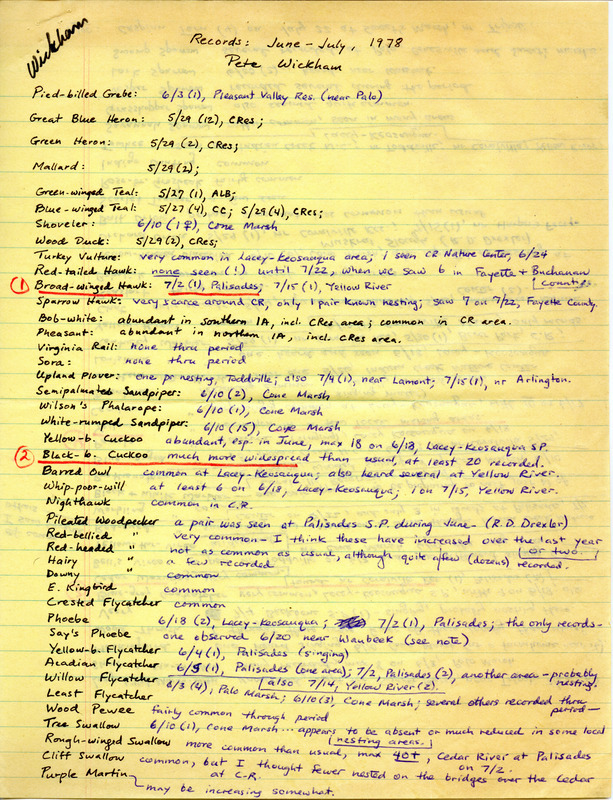 Wickham
Records: June-July, 1978
Pete Wickham
Pied-billed Grebe: 6/3 (1), Pleasant Valley Res. (near Palo)
Great Blue Heron: 5/29 (12), CRes;
Green Heron: 5/29 (2), CRes;
Mallard: 5/29 (2);
Green-winged Teal: 5/27 (1), ALB;
Blue-winged Teal: 5/27 (4), CC; 5/29 (4), CRes;
Shoveler: 6/10 (1♀), Cone Marsh
Wood Duck: 5/29 (2), CRes;
Turkey Vulture: very common in Lacey-Keosauqua area; 1 seen CR Nature Center, 6/24
Red-tailed Hawk: none seen (!) until 7/22, when we saw 6 in Fayette & Buchanan counties
① Broad-winged Hawk: 7/2 (1), Palisades; 7/15 (1), Yellow River
Sparrow Hawk: very scarce around CR, only 1 pair known nesting; saw 7 on 7/22, Fayette County.
Bob-white: abundant in southern IA, incl. CRes area; common in CR area.
Pheasant: abundant in northern IA, incl. CRes area.
Virginia Rail: none thru period
Sora: none thru period
Upland Plover: one pr nesting, Toddville; also 7/4 (1), near Lamont; 7/15 (1), nr Arlington.
Semipalmated Sandpiper: 6/10 (2), Cone Marsh
Wilson's Phalarope: 6/10 (1), Cone Marsh
White-rumped Sandpiper: 6/10 (15), Cone Marsh
Yellow-b. Cuckoo abundant, esp. in June, max 18 on 6/18, Lacey-Keosauqua SP.
② Black-b. Cuckoo much more widespread than usual, at least 20 recorded.
Barred Owl common at Lacey-Keosauqua; also heard several at Yellow River.
Whip-poor-will at least 6 on 6/18, Lacey-Keosauqua; 1 on 7/15, Yellow River.
Nighthawk common in C.R.
Pileated Woodpecker a pair was seen at Palisades S.P. during June - (R.D. Drexler)
Red-bellied " very common - I think these have increased over the last year or two.
Red-headed " not as common as usual, although quite a few (dozens) recorded.
Hairy " a few recorded
Downy " common
E. Kingbird common
Crested Flycatcher common
Phoebe 6/18 (2), Lacey-Keosauqua; 7/2 (1), Palisades; the only records-
Say's Phoebe one observed 6/20 near Waubeek (see note)
Yellow-b. Flycatcher 6/4 (1), Palisades (singing)
Acadian Flycatcher (1), Palisades (one area); 7/2, Palisades (2), another area - probably nesting.
also 7/14, Yellow River (2).
Willow Flycatcher 6/3 (4), Palo Marsh; 6/10 (3), Cone Marsh; several others recorded thru period-
Least Flycatcher
Wood Pewee fairly common through period
Tree Swallow 6/10 (1), Cone Marsh... appears to be absent or much reduced in some local nesting areas.
Rough-winged Swallow more common than usual, max 40+, Cedar River at Palisades on 7/2.
Cliff Swallow common, but I thought fewer nested on the bridges over the Cedar at C.R.
Purple Martin may be increasing somewhat.